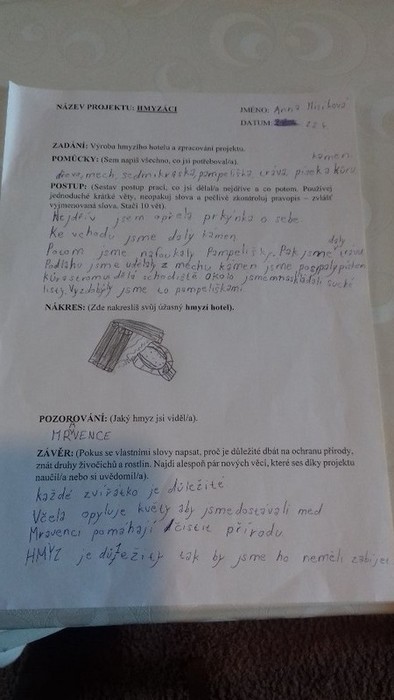 NÁZEV PROJEKTU: HMYZÁCI
JMÉNO: Anna
DATUM: 22.4.
ZADÁNÍ: Výroba hmyzího hotelu a zpracování projektu.
POMŮCKY: (Sem napiš všechno, co jsi potřeboval/a).
kamen
dřevo, mech, sedmikráska, pampeliška, tráva, písek a kůra
POSTUP: (Sestav postup prací, co jsi dělal/a nejdříve a co potom. Používej
jednoduché krátké věty, neopakuj slova a pečlivě zkontroluj pravopis – zvlášť
vyjmenovaná slova. Stačí 10 vět).
Nejdřív jsem opřela prkýnka o sebe
Ke vchodu jsme daly kamen
Potom jsme nafoukaly Pampelišky. Pak jsme daly trávu
Podlahu jsme udělaly z mechu kamen jsme posypaly pískem
kůra schodiště okolo suché
listy. Vyzdobyly jsme to pampeliškami.
NÁKRES: (Zde nakreslíš svůj úžasný hmyzí hotel).
POZOROVÁNÍ: (Jaký hmyz jsi viděl/a).
MRAVENCE
ZÁVĚR: (Pokus se vlastními slovy napsat, proč je důležité dbát na ochranu přírody,
znát druhy živočichů a rostlin. Najdi alespoň pár nových věcí, které ses díky projektu
naučil/a nebo si uvědomil/a).
každé zvířátko je důležité
Včela opyluje květy aby jsme dostávali med
Mravenci pomáhají čistit přírodu
HMYZ je důležitý tak by jsme ho neměli zabíjet